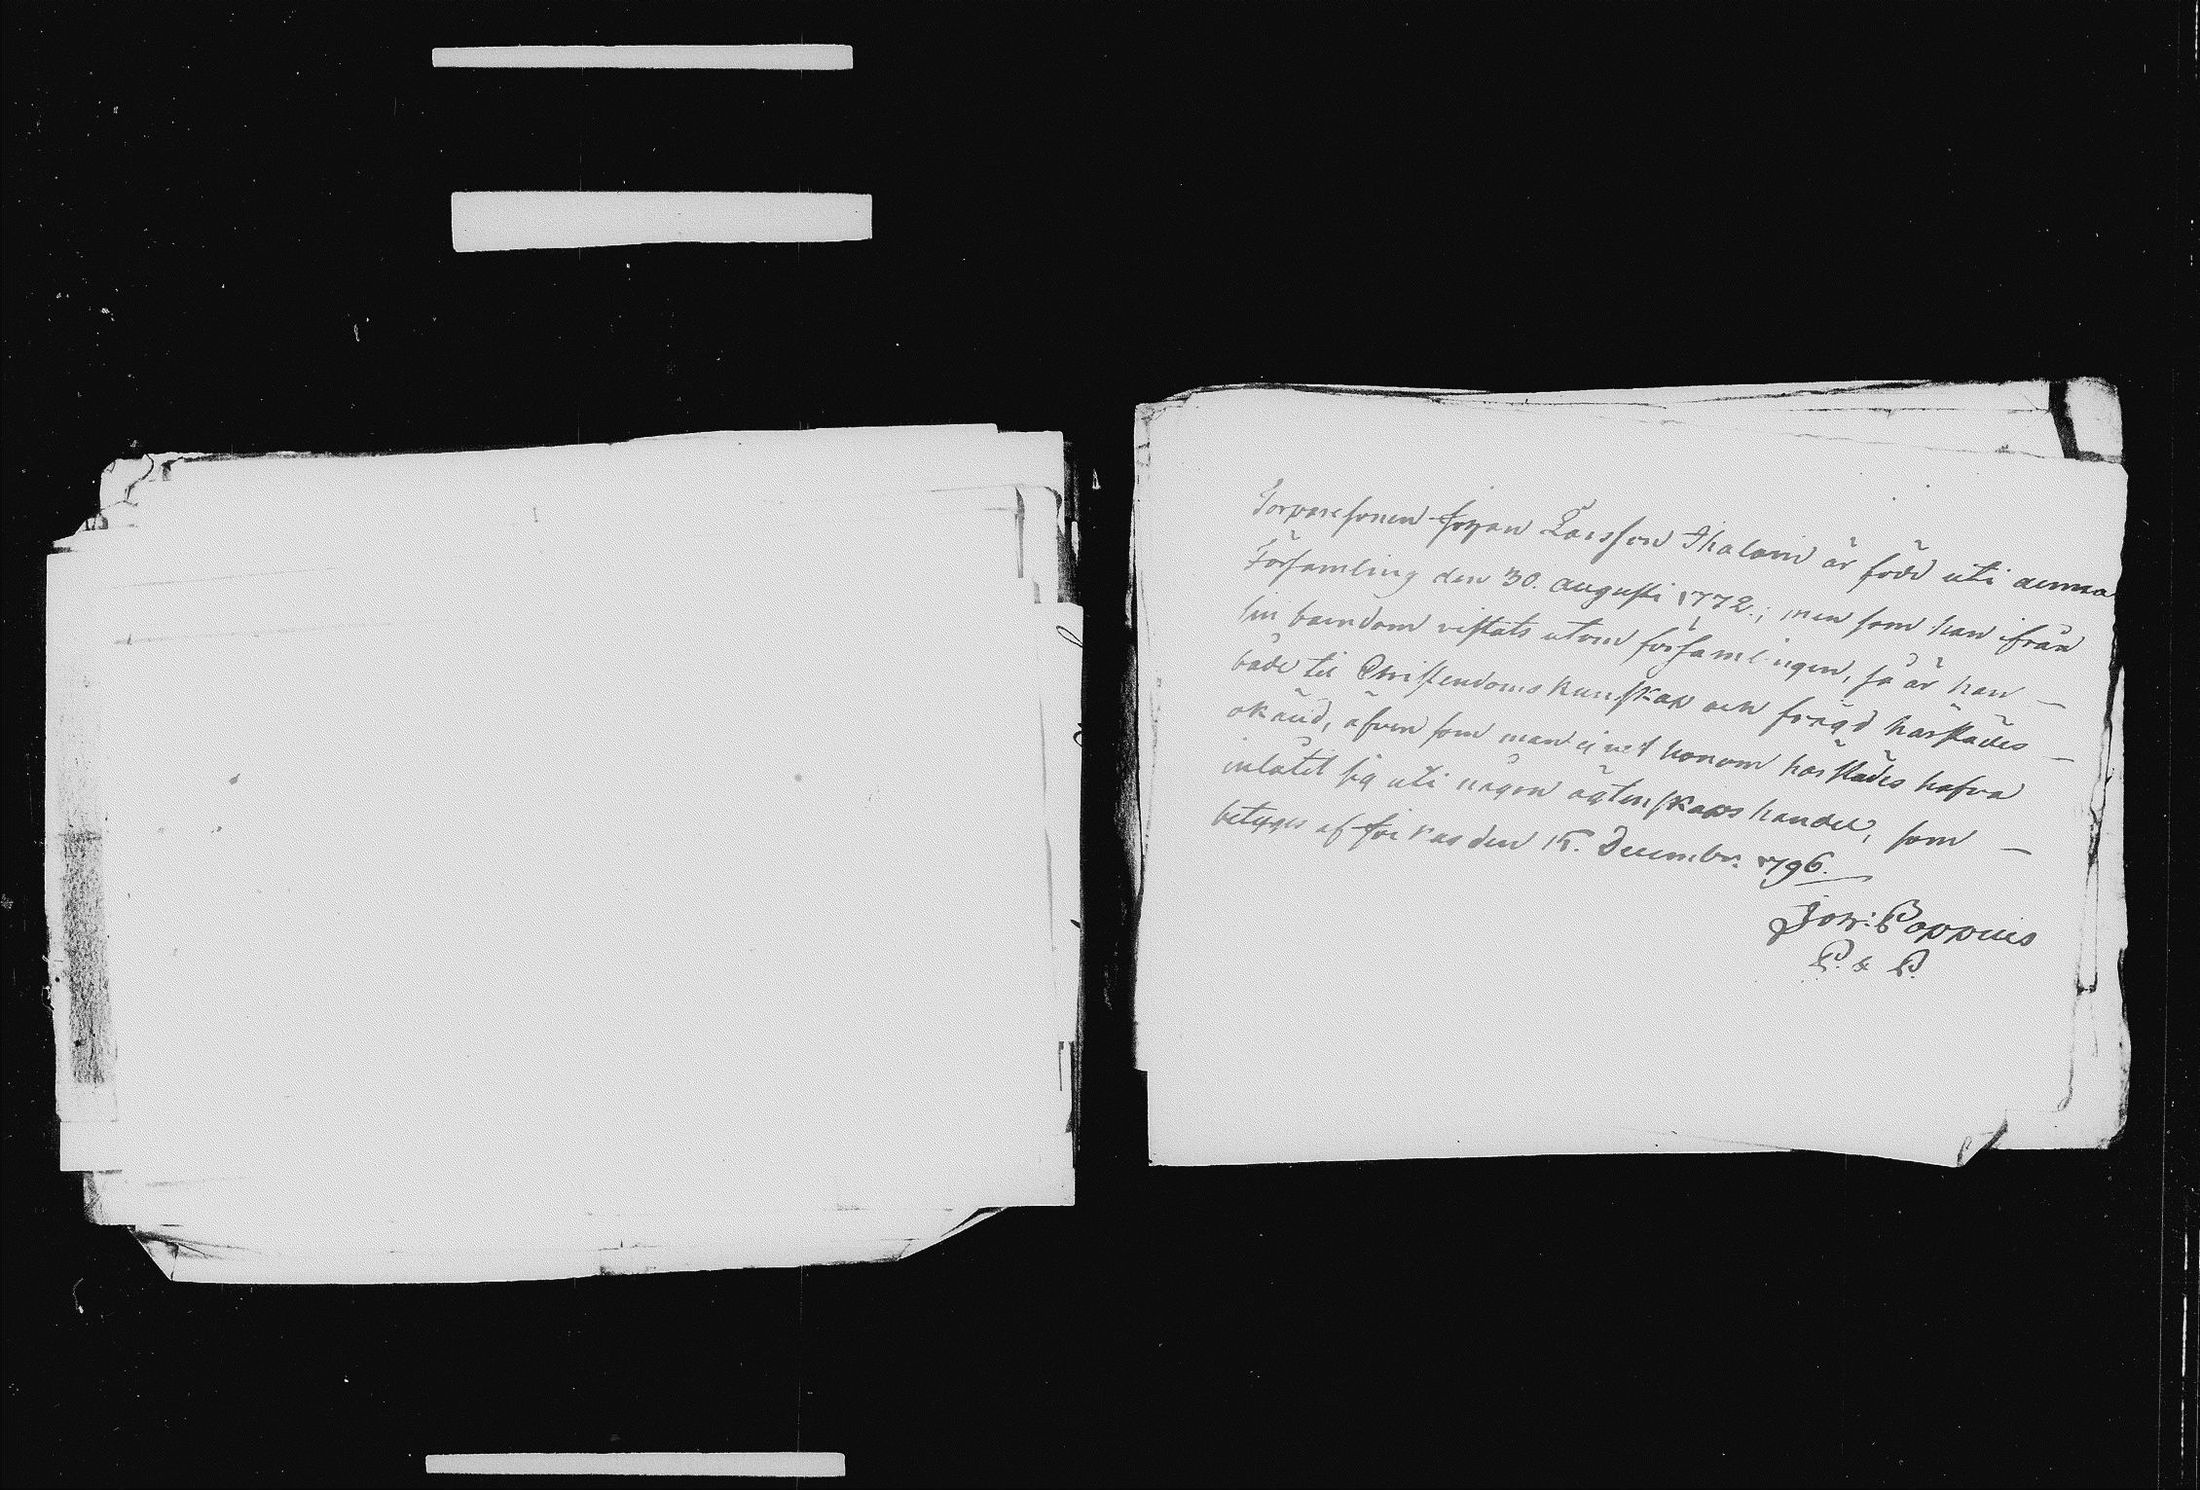 Torparesonen Johan Larsson Ikalain är född uti denna
Församling den 30. augusti 1772.; men som han ifrån
sin barndom vistats utom församlingen, så är han —
både til Christendoms kunskap och frägd härstädes —
okänd, äfven som man ej vet honom härstädes hafva
inlåtit sig uti någon ägtenskaps handel, som —
betyges af den 15. December 1796.
Joh: Poppius
P. & P.